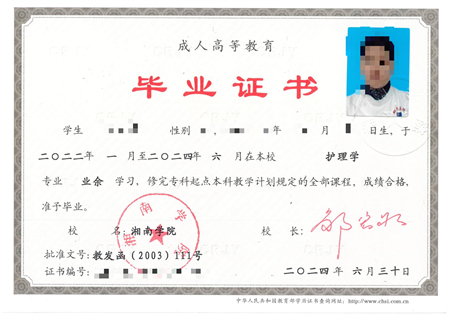 成人高等教育
毕业证书
学生 性别 , 年 月 日生，于
二〇二二年 一 月至二〇二四年 六 月在本校 护理学
专业 业余 学习，修完专科起点本科教学计划规定的全部课程，成绩合格，
准予毕业。
校 名：湘南学院 校 长：
批准文号：教发函（2003）111号
证书编号：
二〇二四年 六 月三十日
中华人民共和国教育部学历证书查询网址：http://www.chsi.com.cn